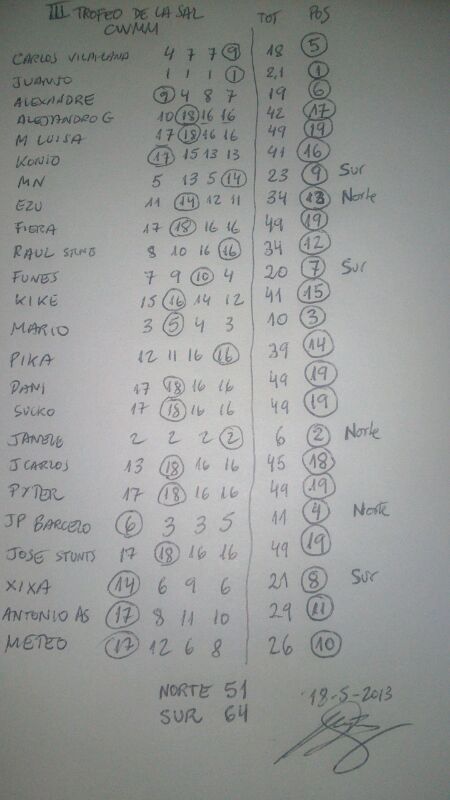 III TROFEO DE LA SAL TOT POS
CWMM
CARLOS VILAPLANA 4 7 7 9 18 5
JUANJO 1 1 1 1 2,1 1
ALEXANDRE 9 4 8 7 19 6
ALEJANDRO G 10 18 16 16 42 17
M LUISA 17 18 16 16 49 19
KONIO 17 15 13 13 41 16
MN 5 13 5 14 23 9 Sur
EZU 11 14 12 11 34 13 Norte
FIERA 17 18 16 16 49 19
RAUL 8 10 16 16 34 12
FUNES 7 9 10 4 20 7 Sur
KIKE 15 16 14 12 41 15
MARIO 3 5 4 3 10 3
PIKA 12 11 16 16 39 14
DANI 17 18 16 16 49 19
SUCKO 17 18 16 16 49 19
JANELE 2 2 2 2 6 2 Norte
J CARLOS 13 18 16 16 45 18
PYTER 17 18 16 16 49 19
JP BARCELO 6 3 3 5 11 4 Norte
JOSE STUNTS 17 18 16 16 49 19
XIXA 14 6 9 6 21 8 Sur
ANTONIO AS 17 8 11 10 29 11
METEO 17 12 6 8 26 10
NORTE 51 18-5-2013
SUR 64